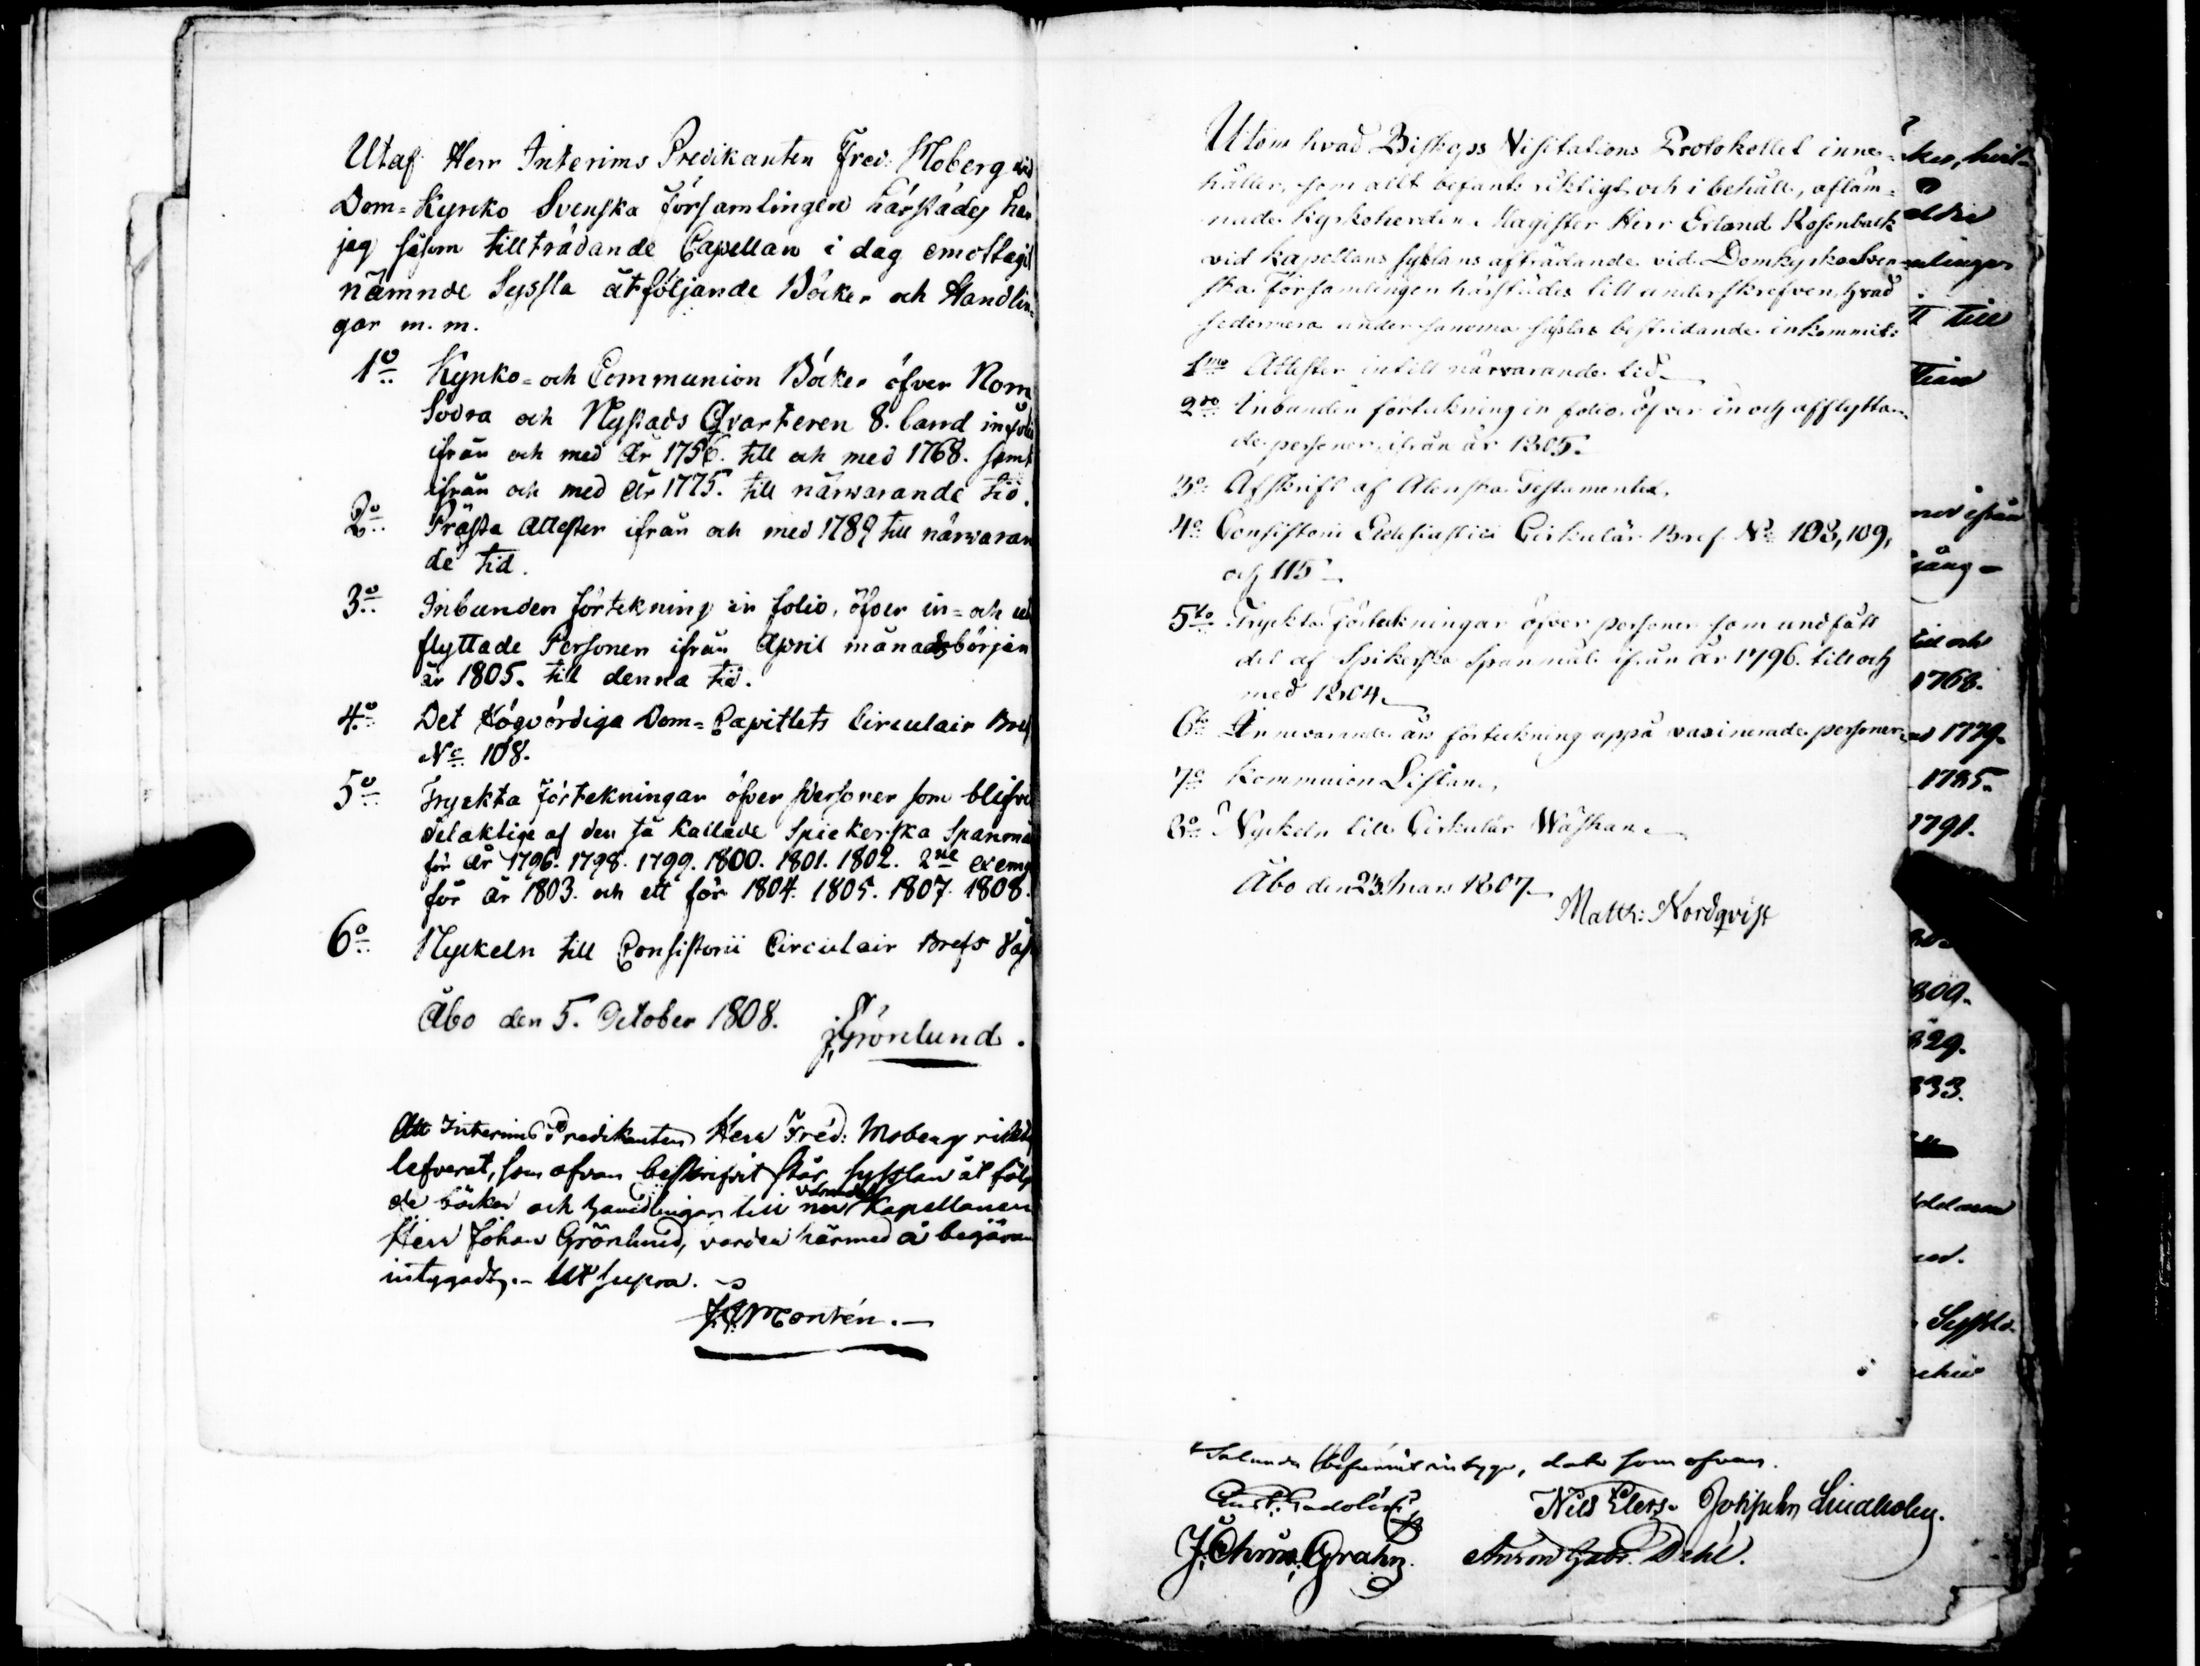 Utaf Herr Interims Predikanten Fred: Moberg vid
Dom=Kyrko Svenska Församlingen härstädes har
jag såsom tillträdande Capellan i dag emottagit
nämnde Syssla åtföljande Böcker och Handlin=
gar m. m.
1o Kyrko= och Communion Böcker öfver Norra
Södra och Nystads Qvarteren 8. band in folio
ifrån och med År 1756. till och med 1768. samt
ifrån och med År 1775. till närwarande tid.
2o Prästa Attester ifrån och med 1789 till närwaran
de tid.
3o Inbunden förtekning in folio, öfver in= och ut
flyttade Personer ifrån April månads början
år 1805. till denna tid.
4o Det Högvördiga Dom=Capitlets Circulair Bref
No 108.
5o Tryckta förtekningar öfver Personer som blifvit
delaktige af den så kallade Spiekerska Spanmål
för År 1796. 1798. 1799. 1800. 1801. 1802. 2ne exempl
för år 1803. och ett för 1804. 1805. 1807. 1808.
6o Nyckeln till Consistorii Circulair Brefs Väs
Åbo den 5. October 1808.
J. Grönlund.
Att Interims Predikanten Herr Fred: Moberg riktigt
lefverat, som ofvan beskrifvit står, sysslan åtfölj
de Böcker och handlingar till nu varande Kapellanen
Herr Johan Grönlund, varder härmed å begäran
intygadt. Ut supra.
Montén.
Utom hvad Biskops Visitations Protokollet inne=
håller, som allt befants riktigt och i behåll, afläm=
nade Kyrkoherden Magister Herr Erland Rosenback
vid Kapellans sysslans afträdande vid Domkyrko Sven
ska Församlingen härstädes till underskrefven, hvad
sedermera under samma sysslas bestridande inkommit:
1mo Attester intill närvarande tid.
2do Inbunden förteckning in folio öfver in och afflyttan
de personer ifrån år 1805.
3o Afskrift af Alenska Testamentet,
4o Consistorii Ecclesiastici Cirkulär Bref No 103, 109,
och 115
5to Tryckta Förteckningar öfver personer som undfått
del af Spikerska Spanmål ifrån år 1796. till och
med 1804.
6to Innevarande års förteckning uppå vaxinerade personer
7o Kommunion Listan,
8o Nyckeln till Cirkulär Wäskan
Åbo den 23 Mars 1807.
Matth: Nordqvist
Sålunda befunnit intyga, dato som ofvan.
Gust: Gadolin
Nils Elers. Josephn Lindholm.
J. Grahn. Anton Gabr. Dahl.
till
ifrån
1768.
1779.
1785.
1791.